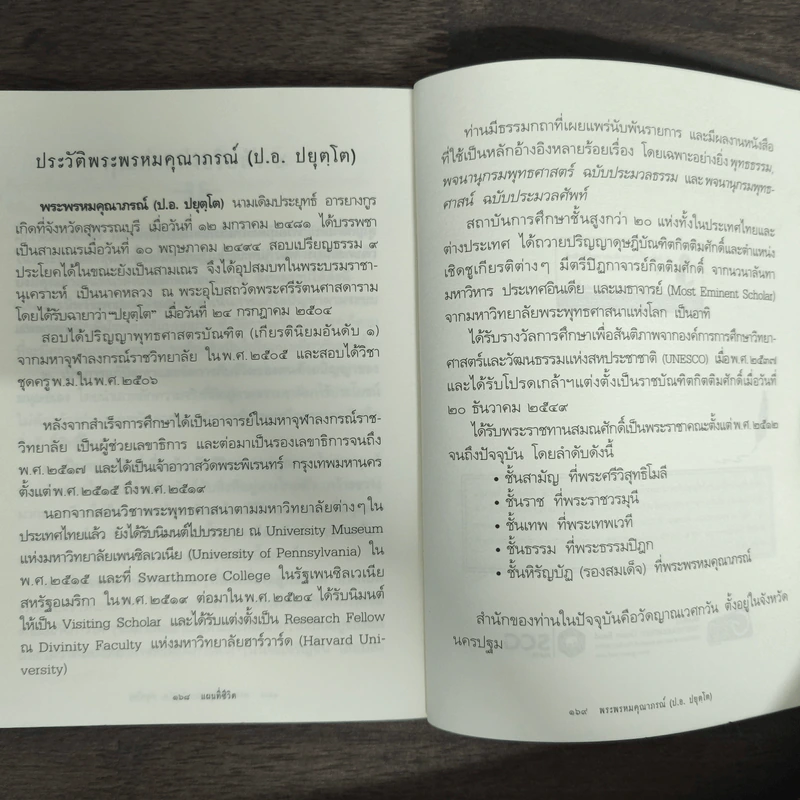 ประวัติพระพรหมคุณาภรณ์ (ป.อ. ปยุตฺโต)
พระพรหมคุณาภรณ์ (ป.อ. ปยุตฺโต) นามเดิมประยุทธ์ อารยางกูร
เกิดที่จังหวัดสุพรรณบุรี เมื่อวันที่ ๑๒ มกราคม ๒๔๘๑ ได้บรรพชา
เป็นสามเณรเมื่อวันที่ ๑๐ พฤษภาคม ๒๔๙๔ สอบเปรียญธรรม ๙
ประโยคได้ในขณะยังเป็นสามเณร จึงได้อุปสมบทในพระบรมราชา-
นุเคราะห์ เป็นนาคหลวง ณ พระอุโบสถวัดพระศรีรัตนศาสดาราม
โดยได้รับฉายาว่า “ปยุตฺโต” เมื่อวันที่ ๒๔ กรกฎาคม ๒๕๐๔
สอบได้ปริญญาพุทธศาสตรบัณฑิต (เกียรตินิยมอันดับ ๑)
จากมหาจุฬาลงกรณ์ราชวิทยาลัย ในพ.ศ. ๒๕๐๕ และสอบได้วิชา
ชุดครู พ.ม. ในพ.ศ. ๒๕๐๖
หลังจากสำเร็จการศึกษาได้เป็นอาจารย์ในมหาจุฬาลงกรณ์ราช-
วิทยาลัย เป็นผู้ช่วยเลขาธิการ และต่อมาเป็นรองเลขาธิการจนถึง
พ.ศ. ๒๕๑๗ และได้เป็นเจ้าอาวาสวัดพระพิเรนทร์ กรุงเทพมหานคร
ตั้งแต่ พ.ศ. ๒๕๑๕ ถึง พ.ศ. ๒๕๑๙
นอกจากสอนวิชาพระพุทธศาสนาตามมหาวิทยาลัยต่างๆ ใน
ประเทศไทยแล้ว ยังได้รับนิมนต์ไปบรรยาย ณ University Museum
แห่งมหาวิทยาลัยเพนซิลเวเนีย (University of Pennsylvania) ใน
พ.ศ. ๒๕๑๕ และที่ Swarthmore College ในรัฐเพนซิลเวเนีย
สหรัฐอเมริกา ใน พ.ศ. ๒๕๑๙ ต่อมาใน พ.ศ. ๒๕๒๔ ได้รับนิมนต์
ให้เป็น Visiting Scholar และได้รับแต่งตั้งเป็น Research Fellow
ณ Divinity Faculty แห่งมหาวิทยาลัยฮาร์วาร์ด (Harvard Uni-
versity)
๑๖๘ แผนที่ชีวิต
ท่านมีธรรมกถาที่เผยแพร่นับพันรายการ และมีผลงานหนังสือ
ที่ใช้เป็นหลักอ้างอิงหลายร้อยเรื่อง โดยเฉพาะอย่างยิ่ง พุทธธรรม,
พจนานุกรมพุทธศาสตร์ ฉบับประมวลธรรม และ พจนานุกรมพุทธ-
ศาสน์ ฉบับประมวลศัพท์
สถาบันการศึกษาชั้นสูงกว่า ๒๐ แห่งทั้งในประเทศไทยและ
ต่างประเทศ ได้ถวายปริญญาดุษฎีบัณฑิตกิตติมศักดิ์และตำแหน่ง
เชิดชูเกียรติต่างๆ มีตรีปิฎกาจารย์กิตติมศักดิ์ จากนวนาลันทา
มหาวิหาร ประเทศอินเดีย และเมธาจารย์ (Most Eminent Scholar)
จากมหาวิทยาลัยพระพุทธศาสนาแห่งโลก เป็นอาทิ
ได้รับรางวัลการศึกษาเพื่อสันติภาพจากองค์การการศึกษาวิทยา-
ศาสตร์และวัฒนธรรมแห่งสหประชาชาติ (UNESCO) เมื่อ พ.ศ. ๒๕๓๗
และได้รับโปรดเกล้าฯ แต่งตั้งเป็นราชบัณฑิตกิตติมศักดิ์เมื่อวันที่
๒๐ ธันวาคม ๒๕๔๙
ได้รับพระราชทานสมณศักดิ์เป็นพระราชาคณะตั้งแต่ พ.ศ. ๒๕๑๒
จนถึงปัจจุบัน โดยลำดับดังนี้
• ชั้นสามัญ ที่พระศรีวิสุทธิโมลี
• ชั้นราช ที่พระราชวรมุนี
• ชั้นเทพ ที่พระเทพเวที
• ชั้นธรรม ที่พระธรรมปิฎก
• ชั้นหิรัญบัฏ (รองสมเด็จ) ที่พระพรหมคุณาภรณ์
สำนักของท่านในปัจจุบันคือวัดญาณเวศกวัน ตั้งอยู่ในจังหวัด
นครปฐม
๑๖๙ พระพรหมคุณาภรณ์ (ป.อ. ปยุตฺโต)